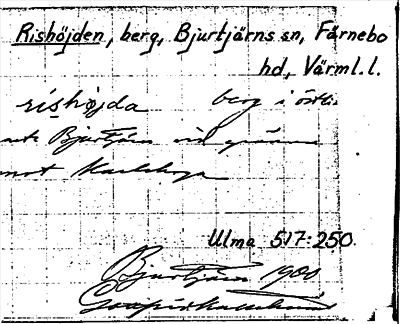 Rishöjden, berg, Bjurtjärns sn, Färnebo
hd, Värml.l.
rishøjda berg i östli
Bjurtjärn vid gränsen
mot Karlskoga
Ulma 517:250.
Bjurtjärn 1900